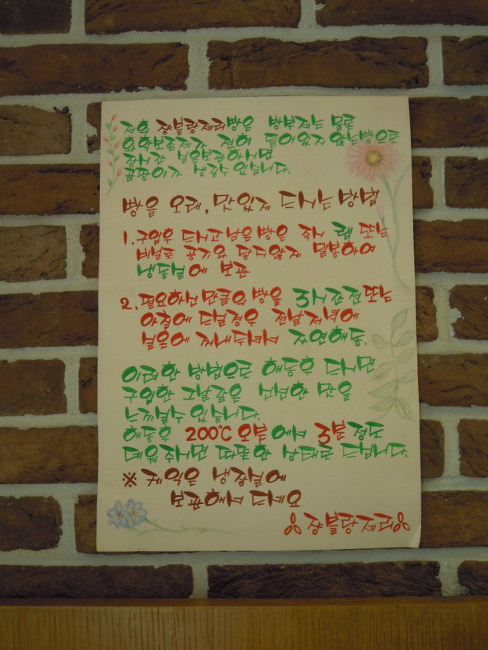 저희 장블랑제리빵은 방부제는 물론
유화보존제가 전혀 들어있지 않은빵으로
실온 보관하시면
곰팡이가 날수 있습니다.
빵을 오래, 맛있게 드시는 방법
1. 구입후 드시고 남은 빵은 즉시 랩 또는
비닐로 공기와 닿지않게 밀봉하여
냉동실에 보관
2. 필요하신 만큼의 빵을 3시간전 또는
아침에 드실경우 전날저녁에
실온에 꺼내두셔서 자연해동.
이러한 방법으로 해동후 드시면
구입한 그날같은 신선한 맛을
느끼실수 있습니다.
해동후 200℃ 오븐에서 3분정도
데워주시면 따끈한 상태로 드십니다.
※ 케익은 냉장실에
보관해서 드세요
장블랑제리